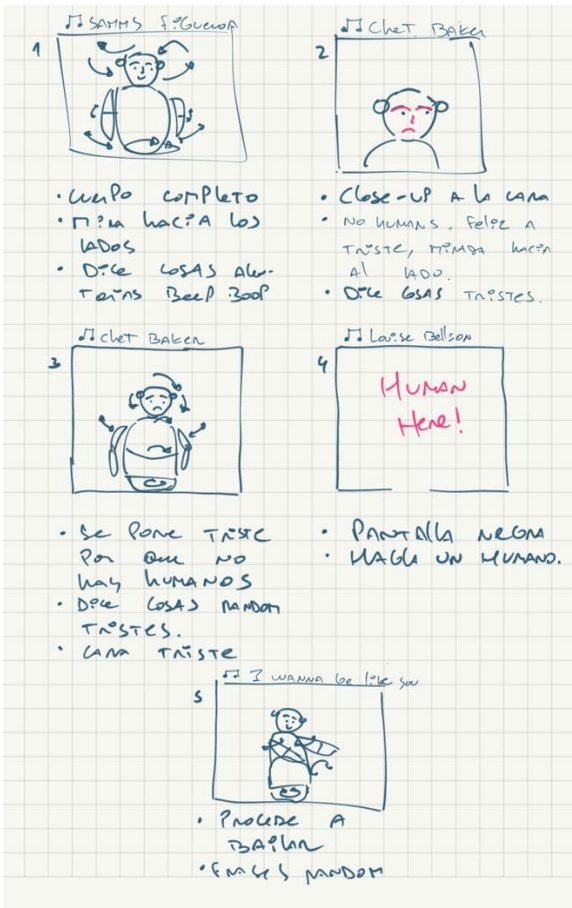 ♫ SAMMS Figueroa
1
• Cuerpo completo
• Mira hacia los
lados
• Dice cosas alea-
torias Beep Boop
♫ Chet Baker
2
• Close-up a la cara
• No humans. Feliz a
triste, mirada hacia
al lado.
• Dice cosas tristes.
♫ Chet Baker
3
• Se pone triste
por que no
hay humanos
• Dice cosas random
tristes.
• Cara triste
♫ Louise Bellson
4
HUMAN
Here!
• Pantalla negra
• un humano.
♫ I wanna be like you
5
• Procede a
bailar
• Frases random